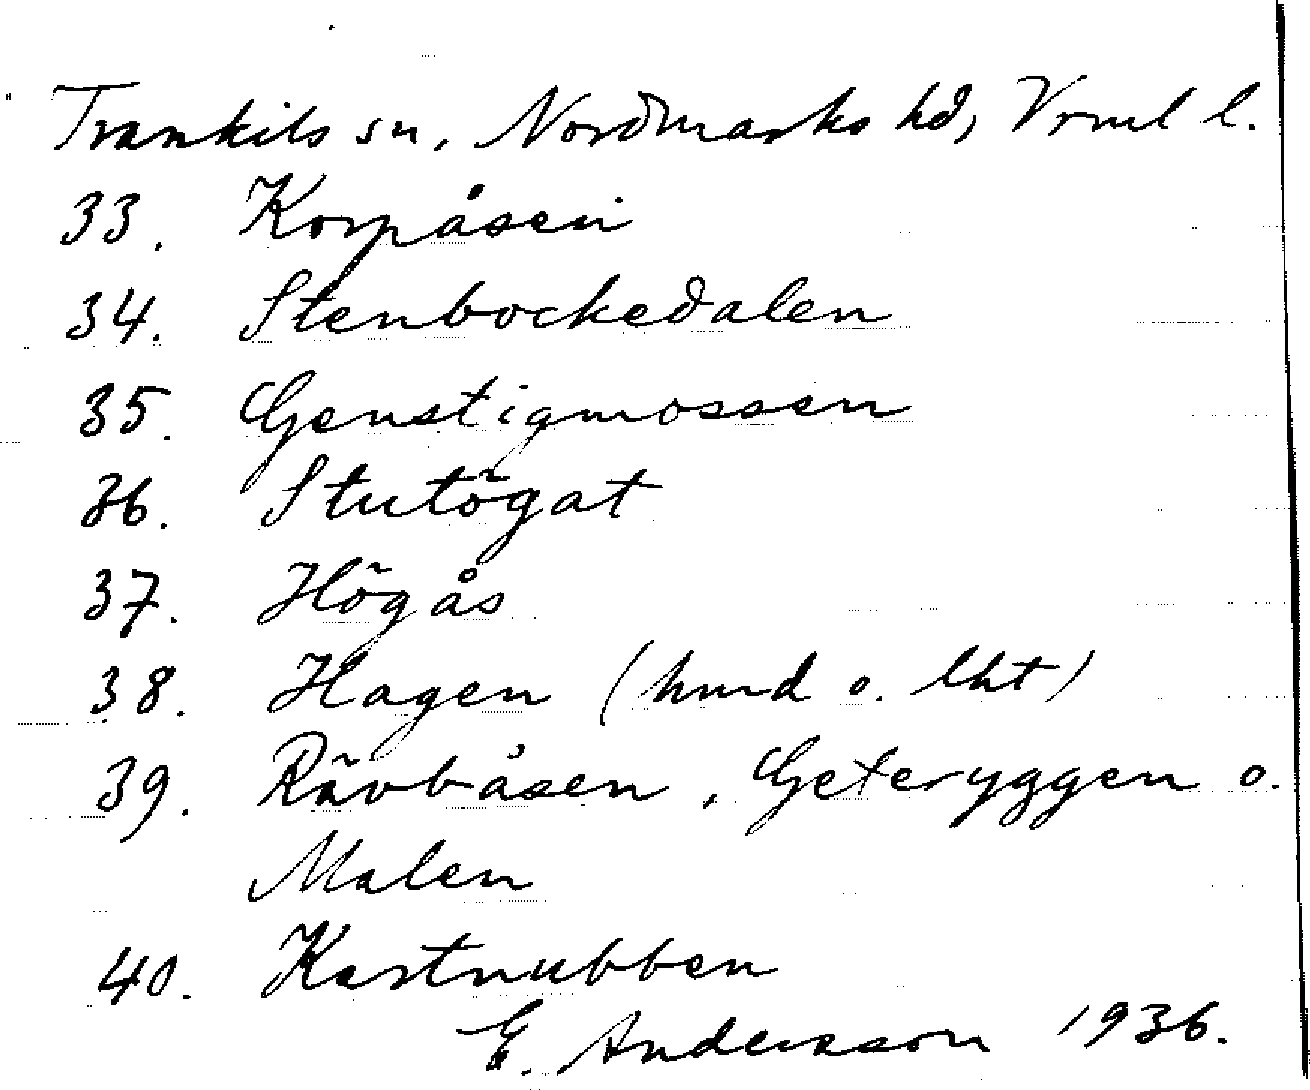 Trankils sn, Nordmarks hd, Vrml l.
33. Korpåsen
34. Stenbockedalen
35. Genstigmossen
36. Stutögat
37. Högås
38. Hagen (hmd o. lht)
39. Rävbåsen, Geteryggen o.
Malen
40. Kastnubben
E. Andersson 1936.